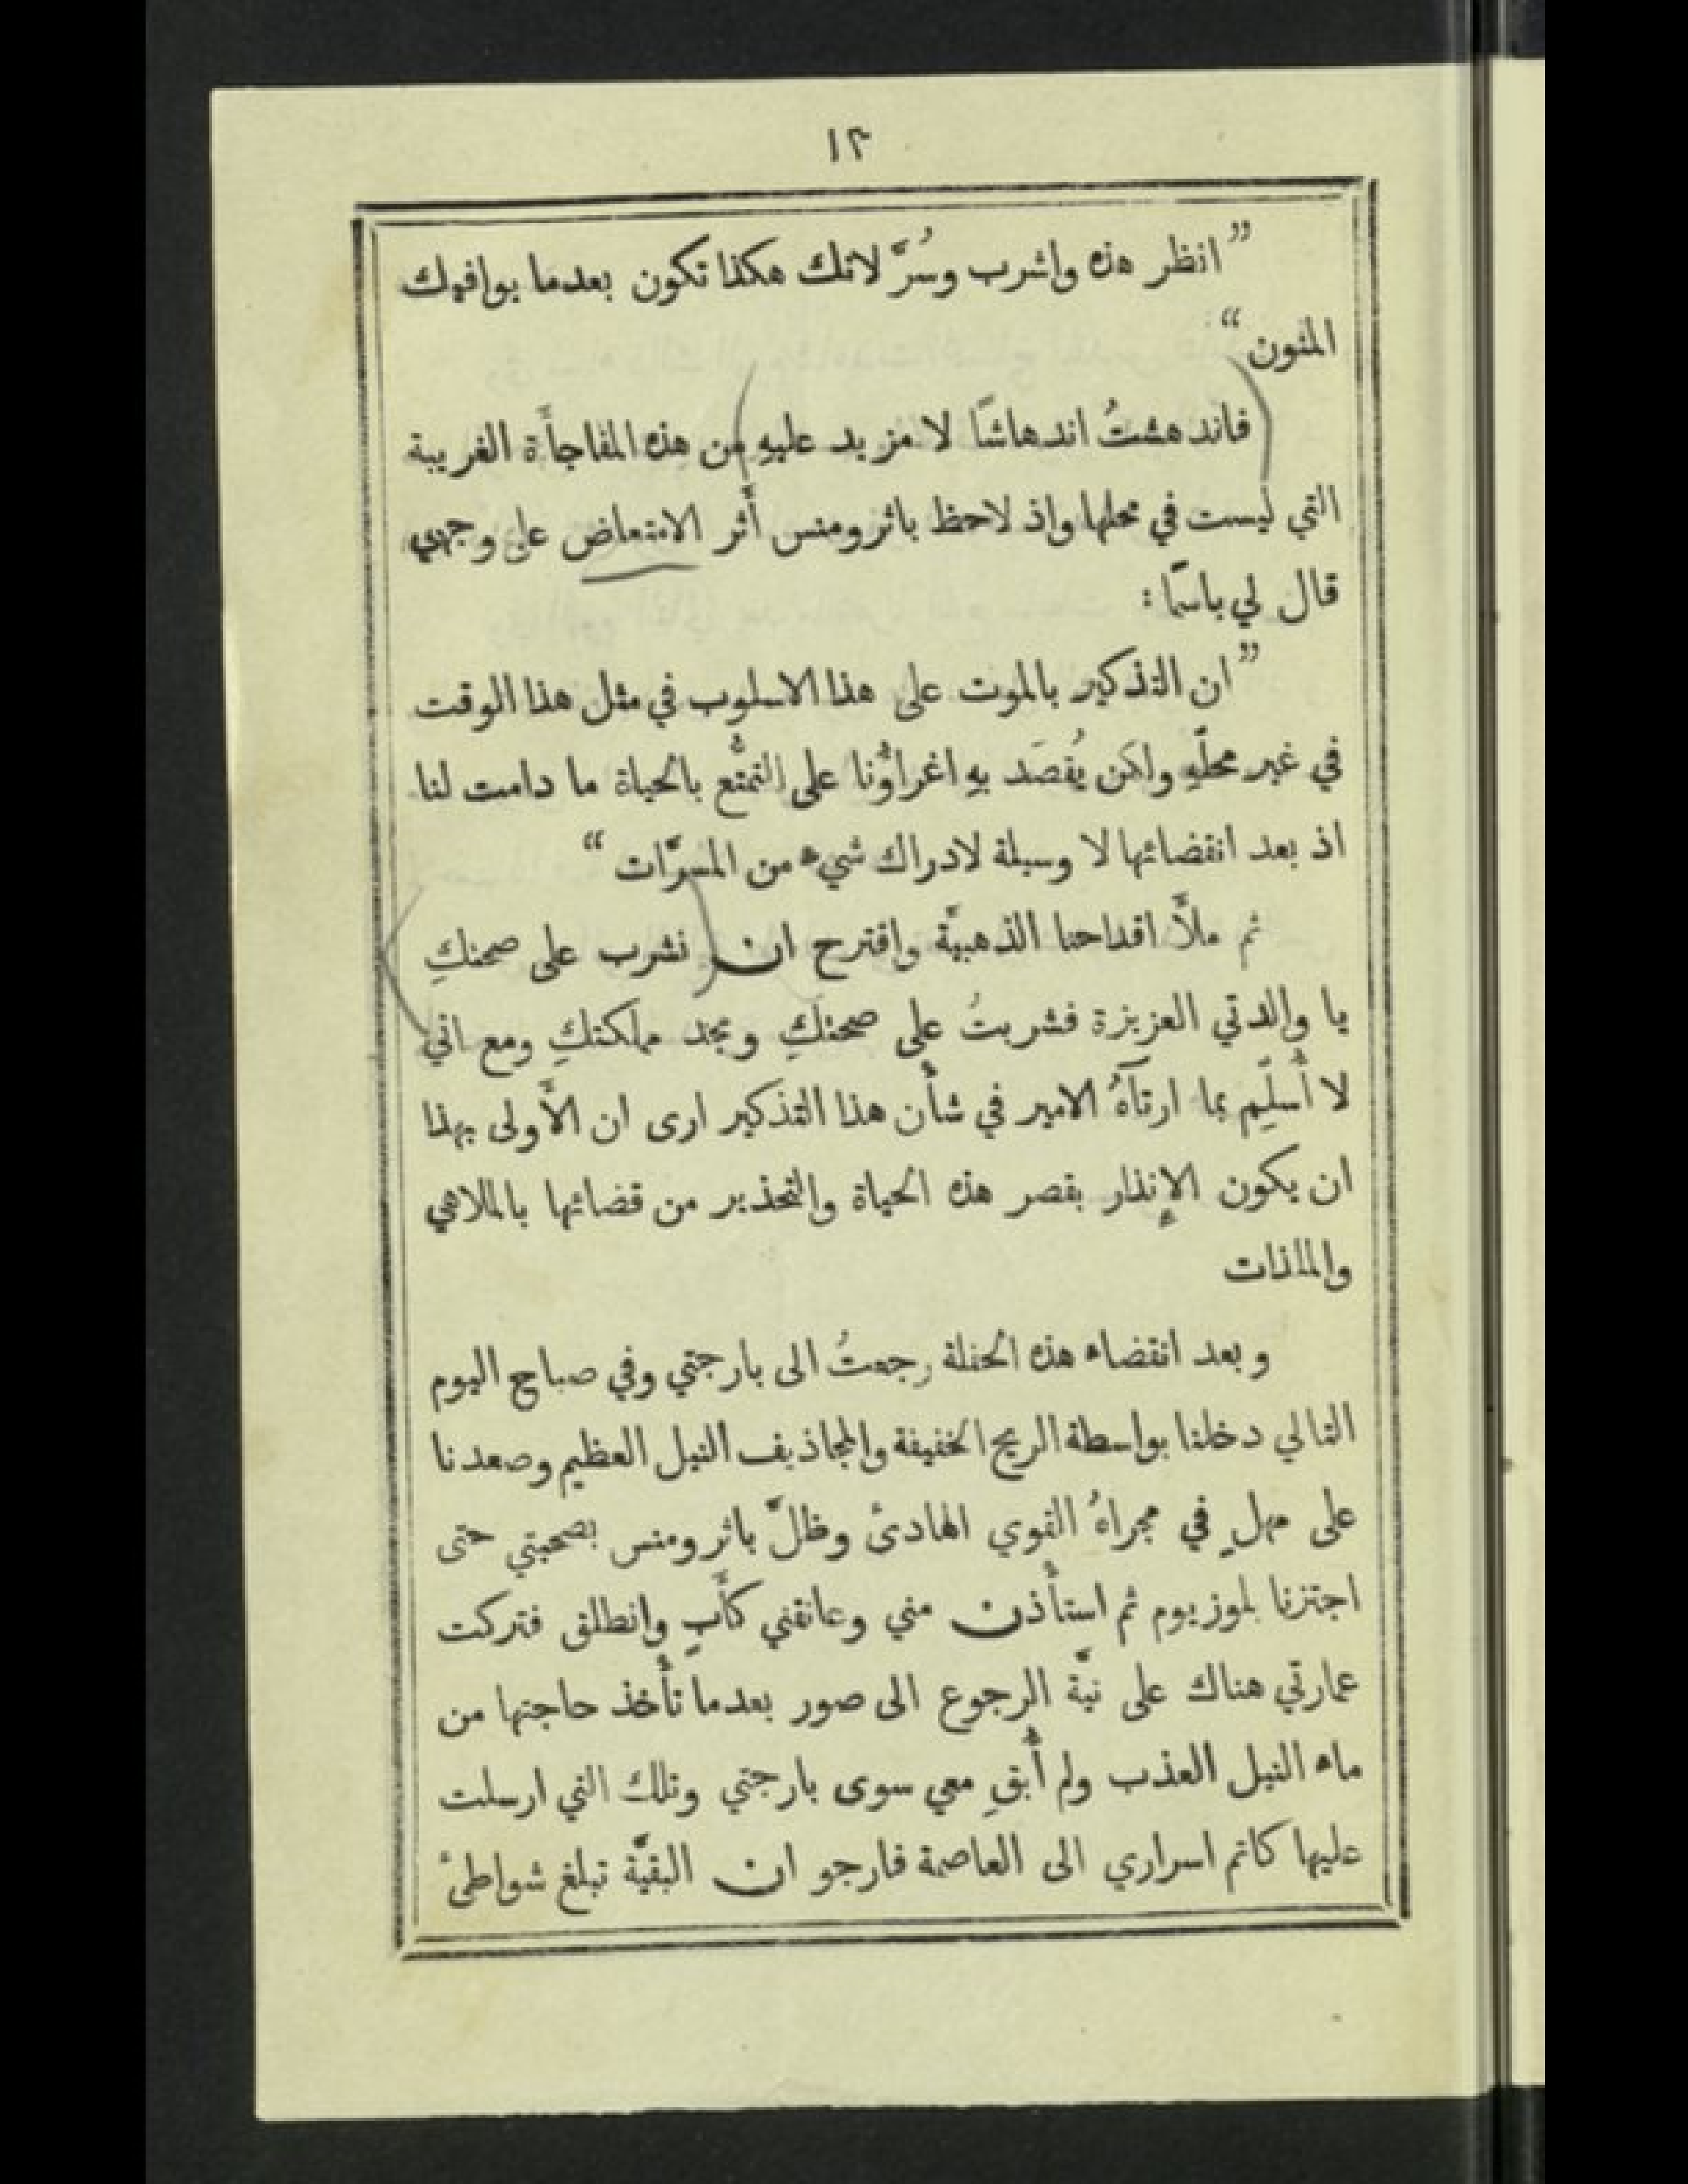 ١٢
”انظر هذه واشرب وسُرَّ لانك هكذا تكون بعدما يوافيك
المنون“
فاندهشتُ اندهاشًا لا مزيد عليهِ من هذه المفاجأَة الغريبة
التي ليست في محلها واذ لاحظ باثرومنس أَثر الامتعاض على وجهي
قال لي باسمًا :
”ان التذكير بالموت على هذا الاسلوب في مثل هذا الوقت
في غير محلّهِ ولكن يُقصَد بهِ اغراؤُنا على التمتُّع بالحياة ما دامت لنا
اذ بعد انقضائها لا وسيلة لادراك شيء من المسرَّات“
ثم ملأَ اقداحنا الذهبيَّة واقترح ان نشرب على صحتكِ
يا والدتي العزيزة فشربتُ على صحتكِ ومجد مملكتكِ ومع اني
لا أُسلِّم بما ارتآهُ الامير في شأْن هذا التذكير ارى ان الأَولى بهذا
ان يكون الإِنذار بقصر هذه الحياة والتحذير من قضائها بالملاهي
والملذات
وبعد انقضاء هذه الحفلة رجعتُ الى بارجتي وفي صباح اليوم
التالي دخلنا بواسطة الريح الخفيفة والمجاذيف النيل العظيم وصعدنا
على مهلٍ في مجراهُ القوي الهادئ وظلَّ باثرومنس بصحبتي حتى
اجتزنا بلوزيوم ثم استأْذن مني وعانقني كأَبٍ وانطلق فتركت
عمارتي هناك على نيَّة الرجوع الى صور بعدما تأْخذ حاجتها من
ماء النيل العذب ولم أُبقِ معي سوى بارجتي وتلك التي ارسلت
عليها كاتم اسراري الى العاصمة فارجو ان البقيَّة تبلغ شواطئ